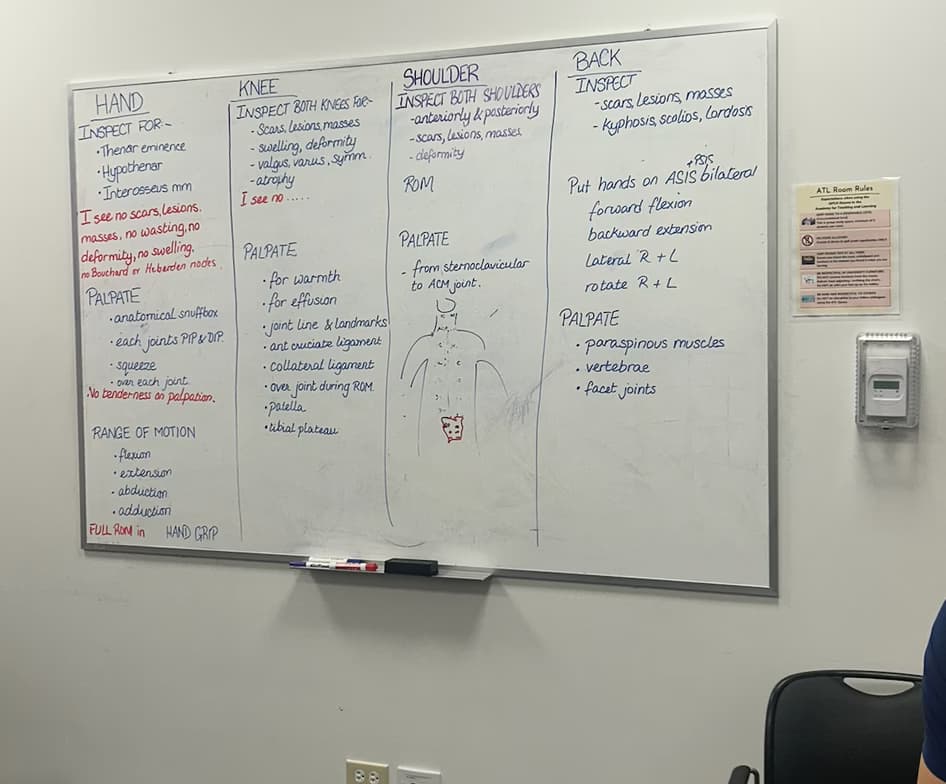 HAND
INSPECT FOR:-
• Thenar eminence
• Hypothenar
• Interosseus mm
I see no scars, lesions.
masses, no wasting, no
deformity, no swelling.
no Bouchard or Heberden nodes.
PALPATE
• anatomical snuffbox
• each joints PIP & DIP.
• squeeze
• over each joint
No tenderness on palpation.
RANGE OF MOTION
• flexion
• extension
• abduction
• adduction
FULL ROM in HAND GRIP
KNEE
INSPECT BOTH KNEES FOR:-
- Scars, lesions, masses
- swelling, deformity
- valgus, varus, symm.
- atrophy
I see no .....
PALPATE
• for warmth
• for effusion
• joint line & landmarks
• ant cruciate ligament
• collateral ligament
• over joint during ROM.
• patella
• tibial plateau
SHOULDER
INSPECT BOTH SHOULDERS
- anteriorly & posteriorly
- scars, lesions, masses
- deformity
ROM
PALPATE
- from sternoclavicular
to ACM joint.
BACK
INSPECT
- scars, lesions, masses
- kyphosis, scolios, lordosis
+ PSIS
Put hands on ASIS bilateral
forward flexion
backward extension
Lateral R + L
rotate R + L
PALPATE
• paraspinous muscles
• vertebrae
• facet joints
ATL Room Rules